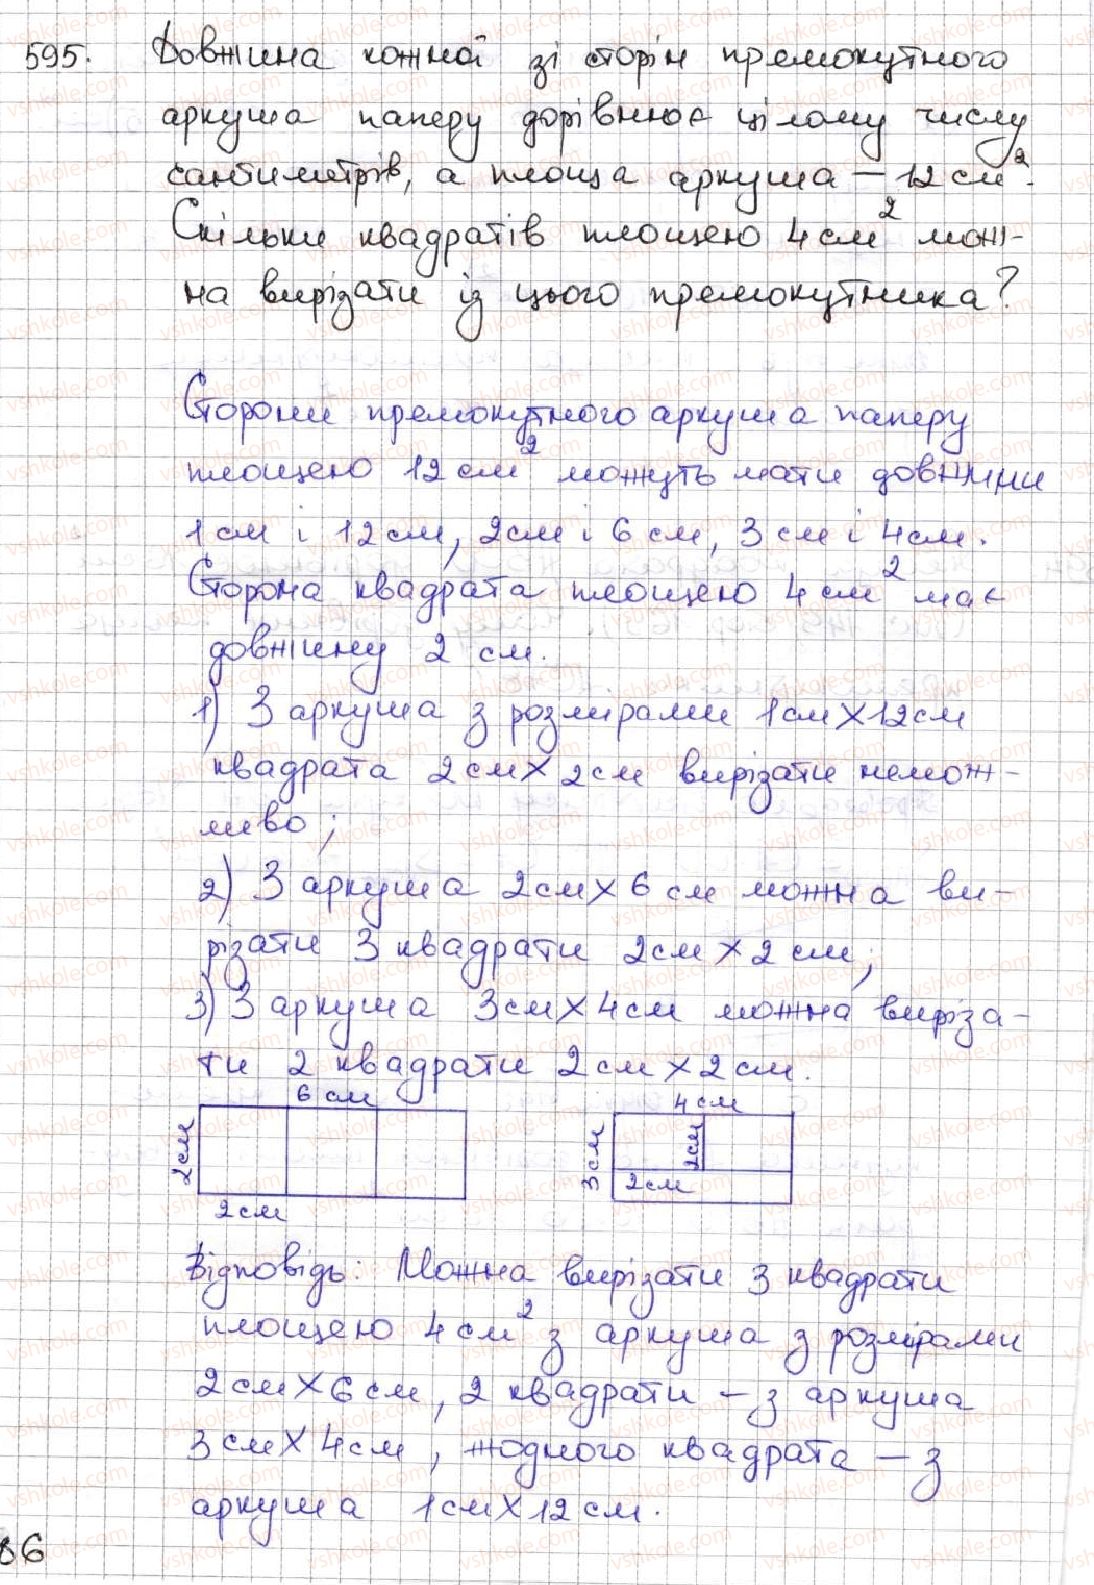 595. Довжина кожної зі сторін прямокутного
аркуша паперу дорівнює цілому числу
сантиметрів, а площа аркуша – 12 см².
Скільки квадратів площею 4 см² мож-
на вирізати із цього прямокутника?
Сторони прямокутного аркуша паперу
площею 12 см² можуть мати довжини
1 см і 12 см, 2 см і 6 см, 3 см і 4 см.
Сторона квадрата площею 4 см² має
довжину 2 см.
1) З аркуша з розмірами 1 см × 12 см
квадрата 2 см × 2 см вирізати немож-
ливо;
2) З аркуша 2 см × 6 см можна ви-
різати 3 квадрати 2 см × 2 см;
3) З аркуша 3 см × 4 см можна виріза-
ти 2 квадрати 2 см × 2 см.
6 см
2 см
2 см
4 см
3 см
2 см
2 см
Відповідь: Можна вирізати 3 квадрати
площею 4 см² з аркуша з розмірами
2 см × 6 см, 2 квадрати – з аркуша
3 см × 4 см, жодного квадрата – з
аркуша 1 см × 12 см.
86